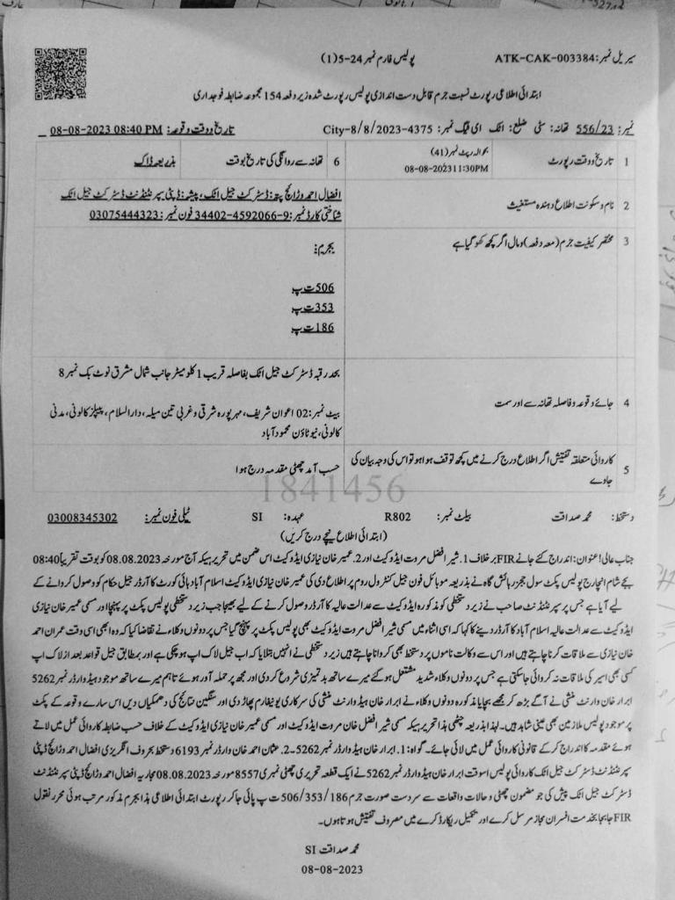 سیریل نمبر: ATK-CAK-003384
پولیس فارم نمبر 24-5(1)
ابتدائی اطلاعی رپورٹ نسبت جرم قابل دست اندازی پولیس رپورٹ شدہ زیر دفعہ 154 مجموعہ ضابطہ فوجداری
نمبر: 556/23 تھانہ: سٹی ضلع: اٹک ای ٹیگ نمبر: City-8/8/2023-4375 تاریخ و وقت وقوعہ: 08-08-2023 08:40 PM
1 تاریخ و وقت رپورٹ
بحوالہ رپٹ نمبر (41)
08-08-2023 11:30PM
6 تھانہ سے روانگی کی تاریخ بوقت
بذریعہ ڈاک
2 نام و سکونت اطلاع دہندہ مستغیث
افضال احمد وڑائچ پتہ: ڈسٹرکٹ جیل اٹک، پیشہ: ڈپٹی سپرنٹنڈنٹ ڈسٹرکٹ جیل اٹک
شناختی کارڈ نمبر: 34402-4592066-9 فون نمبر: 03075444323
3 مختصر کیفیت جرم (معہ دفعہ) و مال اگر کچھ کھو گیا ہے
بجرم:
506 ت پ
353 ت پ
186 ت پ
4 جائے وقوعہ و فاصلہ تھانہ سے اور سمت
بحد رقبہ ڈسٹرکٹ جیل اٹک بفاصلہ قریب 1 کلومیٹر جانب شمال مشرق نوٹ بک نمبر 8
بیٹ نمبر: 02 اعوان شریف، مہرپورہ شرقی و غربی تین میلہ، دارالسلام، پیپلز کالونی، مدنی
کالونی، نیو ٹاؤن محمود آباد
5 کاروائی متعلقہ تفتیش اگر اطلاع درج کرنے میں کچھ توقف ہوا ہو تو اس کی وجہ بیان کی
جاوے
حسب آمد چھٹی مقدمہ درج ہوا
1841456
دستخط: محمد صداقت بیلٹ نمبر: R802 عہدہ: SI ٹیلی فون نمبر: 03008345302
(ابتدائی اطلاع نیچے درج کریں)
جناب عالی! عنوان: اندراج کئے جانے FIR برخلاف 1. شیر افضل مروت ایڈوکیٹ اور 2. عمیر خان نیازی ایڈوکیٹ اس ضمن میں تحریر ہیکہ آج مورخہ 08.08.2023 کو بوقت تقریباً 08:40
بجے شام انچارج پولیس پکٹ سول ججز رہائش گاہ نے بذریعہ موبائل فون جیل کنٹرول روم پر اطلاع دی کی عمیر خان نیازی ایڈوکیٹ اسلام آباد ہائی کورٹ کا آرڈر جیل حکام کو وصول کروانے کے
لیے آیا ہے جس پر سپرنٹنڈنٹ صاحب نے زیر دستخطی کو مذکورہ ایڈوکیٹ سے عدالت عالیہ کا آرڈر وصول کرنے کے لیے بھیجا جب زیر دستخطی پولیس پکٹ پر پہنچا اور مسمی عمیر خان نیازی
ایڈوکیٹ سے عدالت عالیہ اسلام آباد کا آرڈر دینے کا کہا کہ اسی اثناء میں مسمی شیر افضل مروت ایڈوکیٹ بھی پولیس پکٹ پر پہنچ گیا جس پر دونوں وکلاء نے تقاضا کیا کہ وہ ابھی اسی وقت عمران احمد
خان نیازی سے ملاقات کرنا چاہتے ہیں اور اس سے وکالت ناموں پر دستخط بھی کروانا چاہتے ہیں زیر دستخطی نے انھیں بتلایا کہ اب جیل لاک اپ ہو چکی ہے اور بمطابق جیل قواعد بعد از لاک اپ
کسی بھی اسیر کی ملاقات نہ کروائی جا سکتی ہے جس پر دونوں وکلاء شدید مشتعل ہو گئے میرے ساتھ بدتمیزی شروع کر دی اور مجھ پر حملہ آور ہوئے تاہم میرے ساتھ موجود ہیڈ وارڈر نمبر 5262
ابرار خان وارنٹ منشی نے آگے بڑھ کر مجھے بچایا مذکورہ دونوں وکلاء نے ابرار خان ہیڈ وارنٹ منشی کی سرکاری یونیفارم پھاڑ دی اور سنگین نتائج کی دھمکیاں دیں اس سارے وقوعہ کے پکٹ
پر موجود پولیس ملازمین بھی عینی شاہد ہیں۔ لہذا بذریعہ چٹھی ہذا تحریر ہیکہ مسمی شیر افضل خان مروت ایڈوکیٹ اور مسمی عمیر خان نیازی ایڈوکیٹ کے خلاف حسب ضابطہ کاروائی عمل میں لاتے
ہوئے مقدمہ کا اندراج کر کے قانونی کاروائی عمل میں لائی جائے۔ گواہ: 1. ابرار خان ہیڈ وارڈر نمبر 5262۔ 2. عثمان احمد خان وارڈر نمبر 6193 دستخط بحروف انگریزی افضال احمد وڑائچ ڈپٹی
سپرنٹنڈنٹ ڈسٹرکٹ جیل اٹک کاروائی پولیس اسوقت ابرار خان ہیڈ وارڈر نمبر 5262 نے ایک قطعہ تحریری چھٹی نمبری 8557 مورخہ 08.08.2023 مجاریہ افضال احمد وڑائچ ڈپٹی سپرنٹنڈنٹ
ڈسٹرکٹ جیل اٹک پیش کی جو مضمون چھٹی و حالات واقعات سے سردست صورت جرم 506/353/186 ت پ پائی جا کر رپورٹ ابتدائی اطلاعی ہذا بجرم مذکور مرتب ہوئی محرر نقول
FIR جابجا بخدمت افسران مجاز مرسل کرے اور تکمیل ریکارڈ کرے میں مصروف تفتیش ہوتا ہوں۔
محمد صداقت SI
08-08-2023